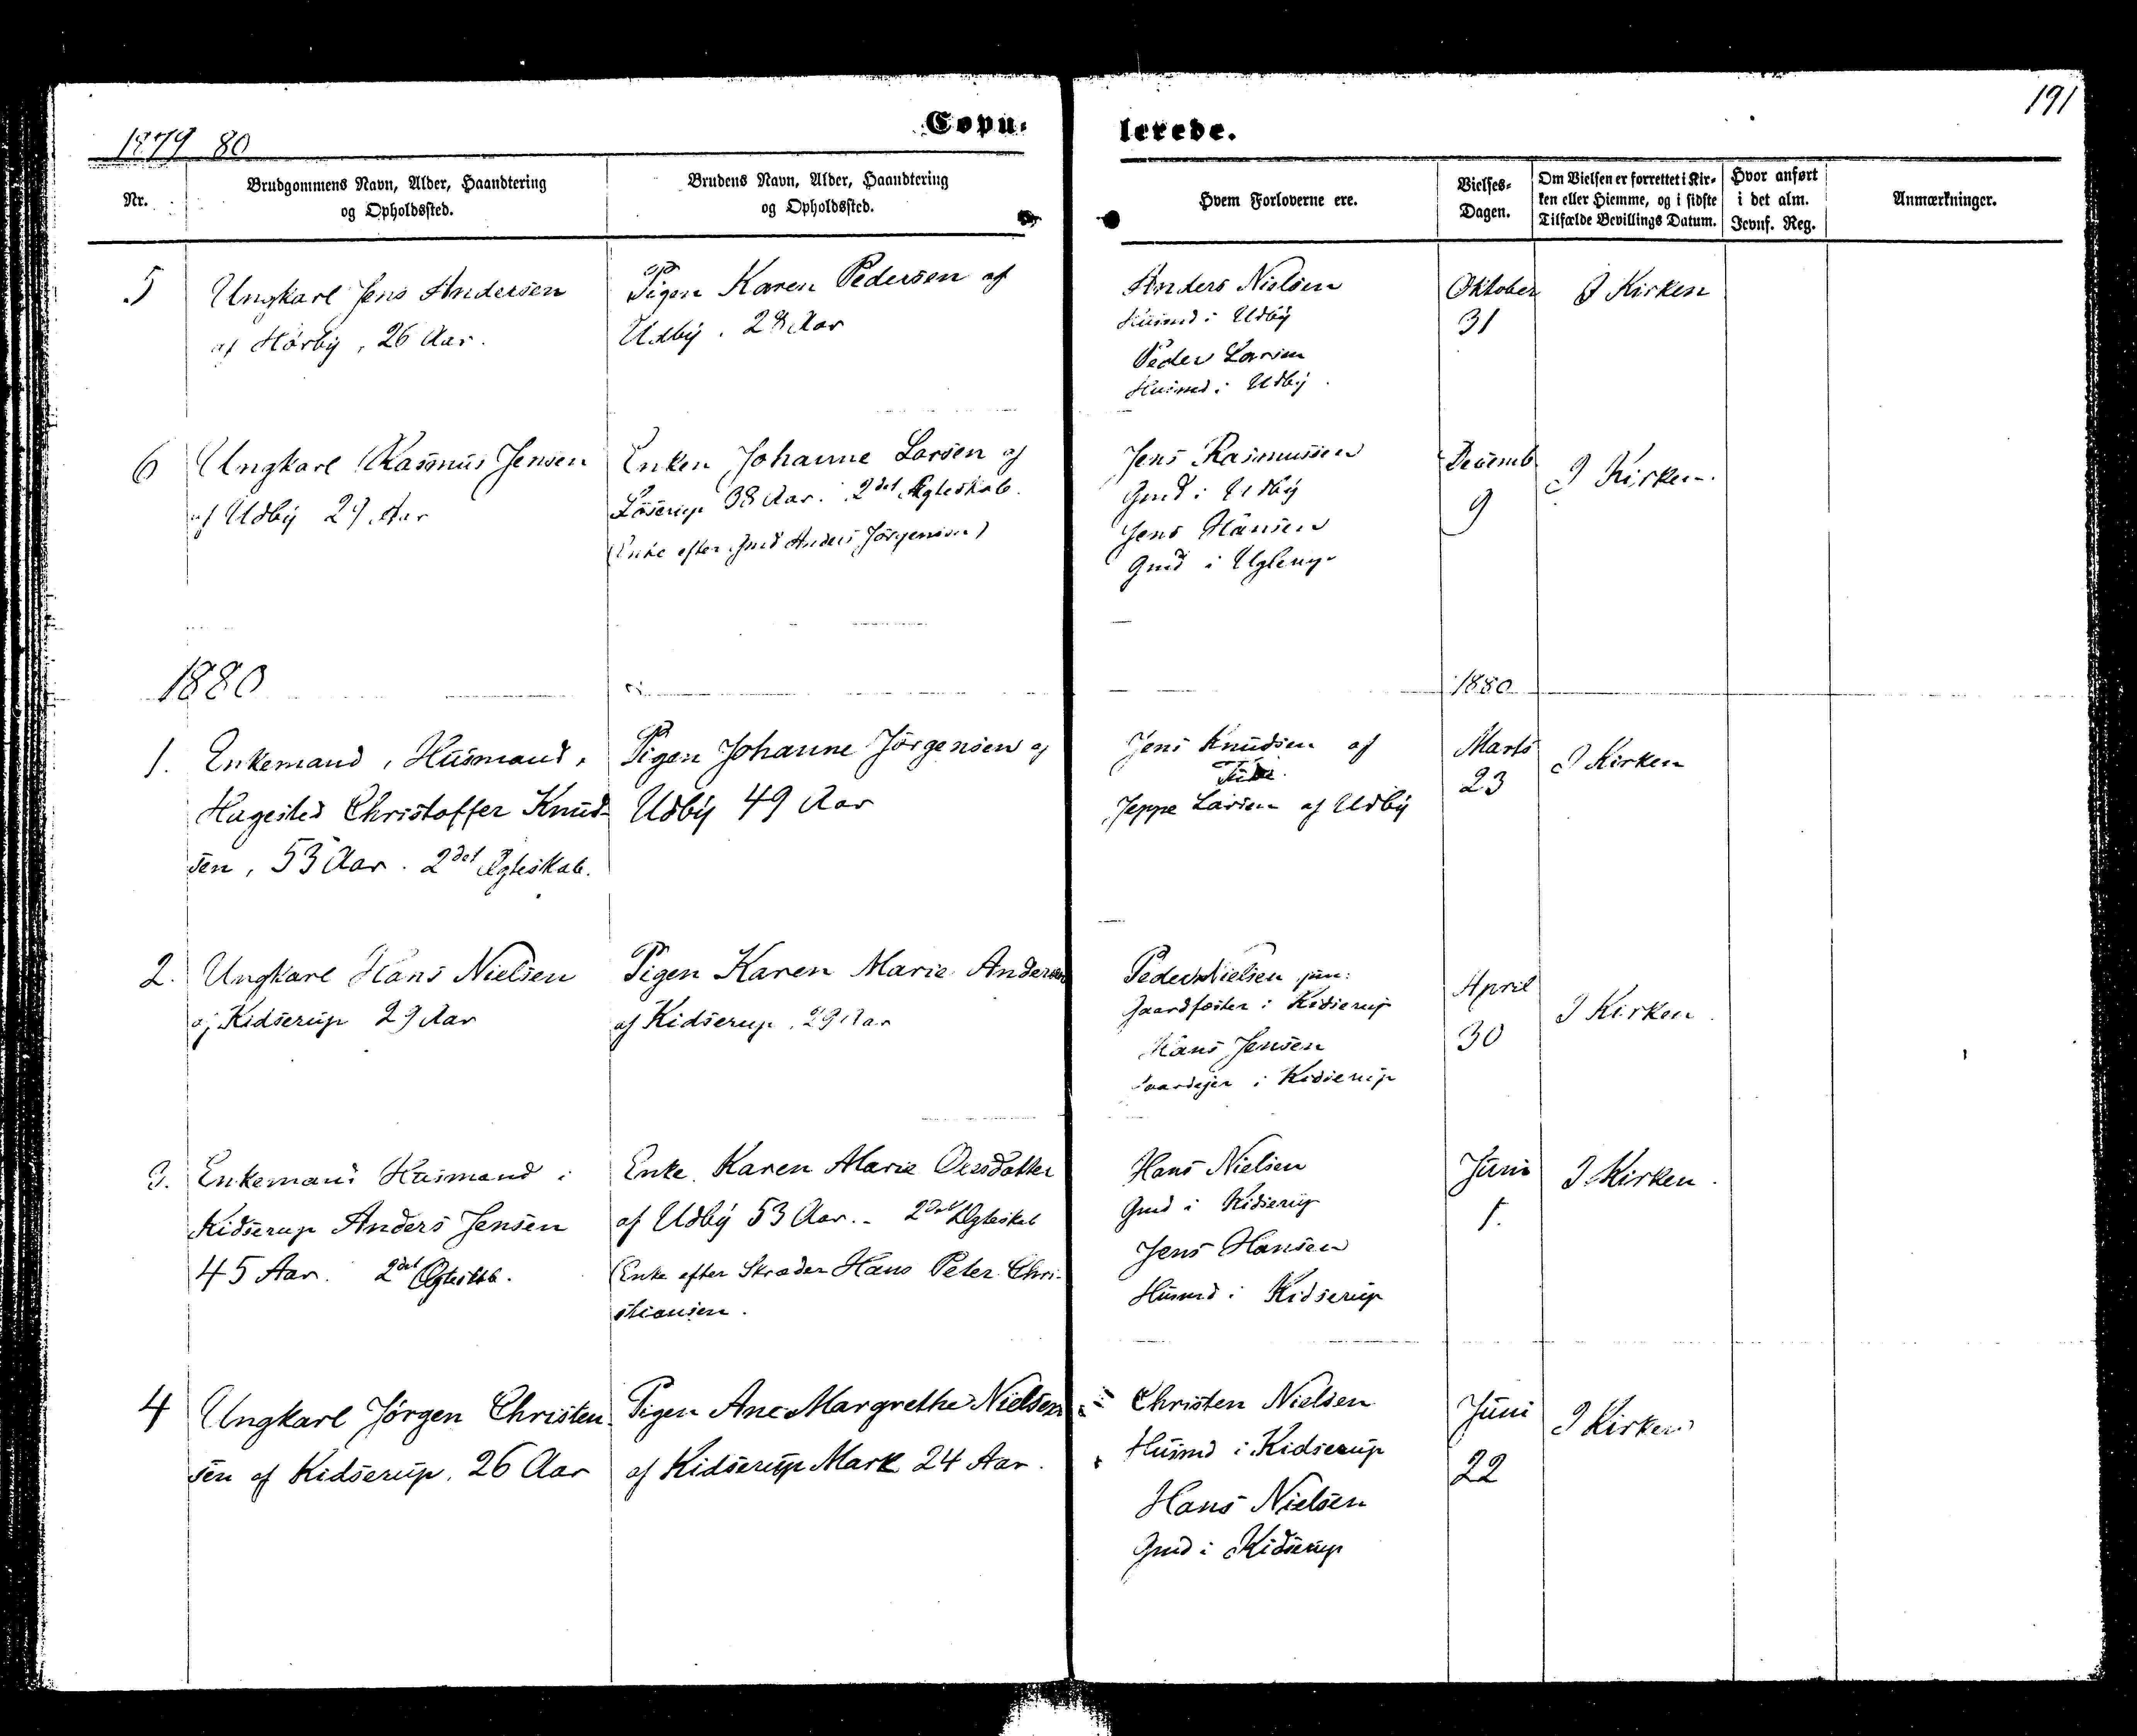 191
1879 80
Copu-
lerede.
Nr.
Brudgommens Navn, Alder, Haandtering
og Opholdssted.
Brudens Navn, Alder, Haandtering
og Opholdssted.
Hvem Forloverne ere.
Vielses-
Dagen.
Om Vielsen er forrettet i Kir-
ken eller Hiemme, og i sidste
Tilfælde Bevillings Datum.
Hvor anført
i det alm.
Jevnf. Reg.
Anmærkninger.
5
Ungkarl Jens Andersen
af Hørby, 26 Aar.
Pigen Karen Pedersen af
Udby. 28 Aar
Anders Nielsen
Husmd i Udby
Peder Larsen
Husmd i Udby.
Oktober
31
I Kirken
6
Ungkarl Rasmus Jensen
af Udby 29 Aar
Enken Johanne Larsen af
Løserup 38 Aar. 2det Ægteskab.
(Enke efter Gmd Anders Jörgensen)
Jens Rasmussen
Gmd i Udby
Jens Hansen
Gmd i Uglerup
Decemb
9
I Kirken.
1880
1880
1.
Enkemand, Husmand,
Hagested Christoffer Knud-
sen, 53 Aar. 2det Ægteskab.
Pigen Johanne Jörgensen af
Udby 49 Aar
Jens Knudsen af
Jeppe Larsen af Udby
Marts
23
I Kirken
2.
Ungkarl Hans Nielsen
af Kidserup 29 Aar
Pigen Karen Marie Andersen
af Kidserup, 29 Aar
Peder Nielsen jun:
Gaardfæster i Kidserup
Hans Jensen
Gaardejer i Kidserup
April
30
I Kirken.
3.
Enkemand Husmand i
Kidserup Anders Jensen
45 Aar. 2det Ægteskb.
Enke. Karen Marie
af Udby 53 Aar. - 2det Ægteskab
(Enke efter Skræder Hans Peter Chri-
stiansen.
Hans Nielsen
Gmd i Kidserup
Jens Hansen
Husmd i Kidserup
Juni
1.
I Kirken.
4
Ungkarl Jörgen Christen-
sen af Kidserup, 26 Aar
Pigen Ane Margrethe Nielsen
af Kidserup Mark 24 Aar.
Christen Nielsen
Husmd i Kidserup
Hans Nielsen
Gmd i Kidserup
Juni
22
I Kirken